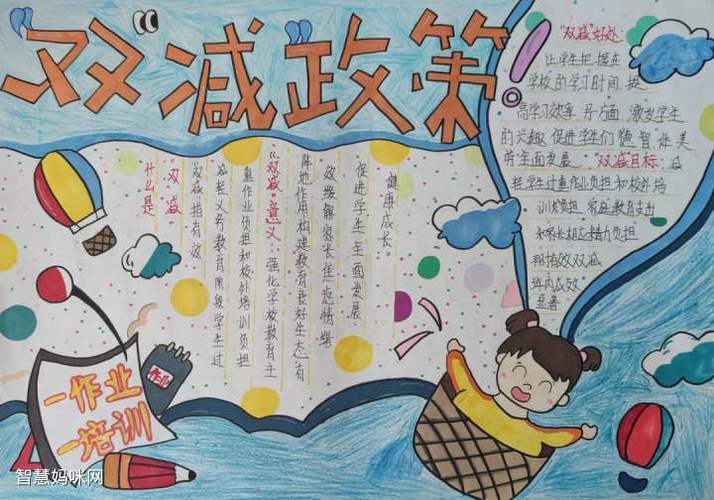 "双"减"政策!
"双减"好处
让学生把握在
学校的学习时间.提
高学习效率. 方面 激发学生
的兴趣 促进学生们德智体美
劳全面发展. "双减"目标:
把学生过重作业负担和校外培
训负担 家庭教育支出
和家长相应精力负担
有效双减
年内成效
显著
什么是
"双减"
"双减"指有效
减轻义务教育阶段学生过
重作业负担和校外培训负担
"双减"意义:强化学校教育主
阵地作用构建教育良好生态.有
效缓解家长焦虑情绪
促进学生全面发展
健康成长。
作业
一作业
一培训
智慧妈咪网